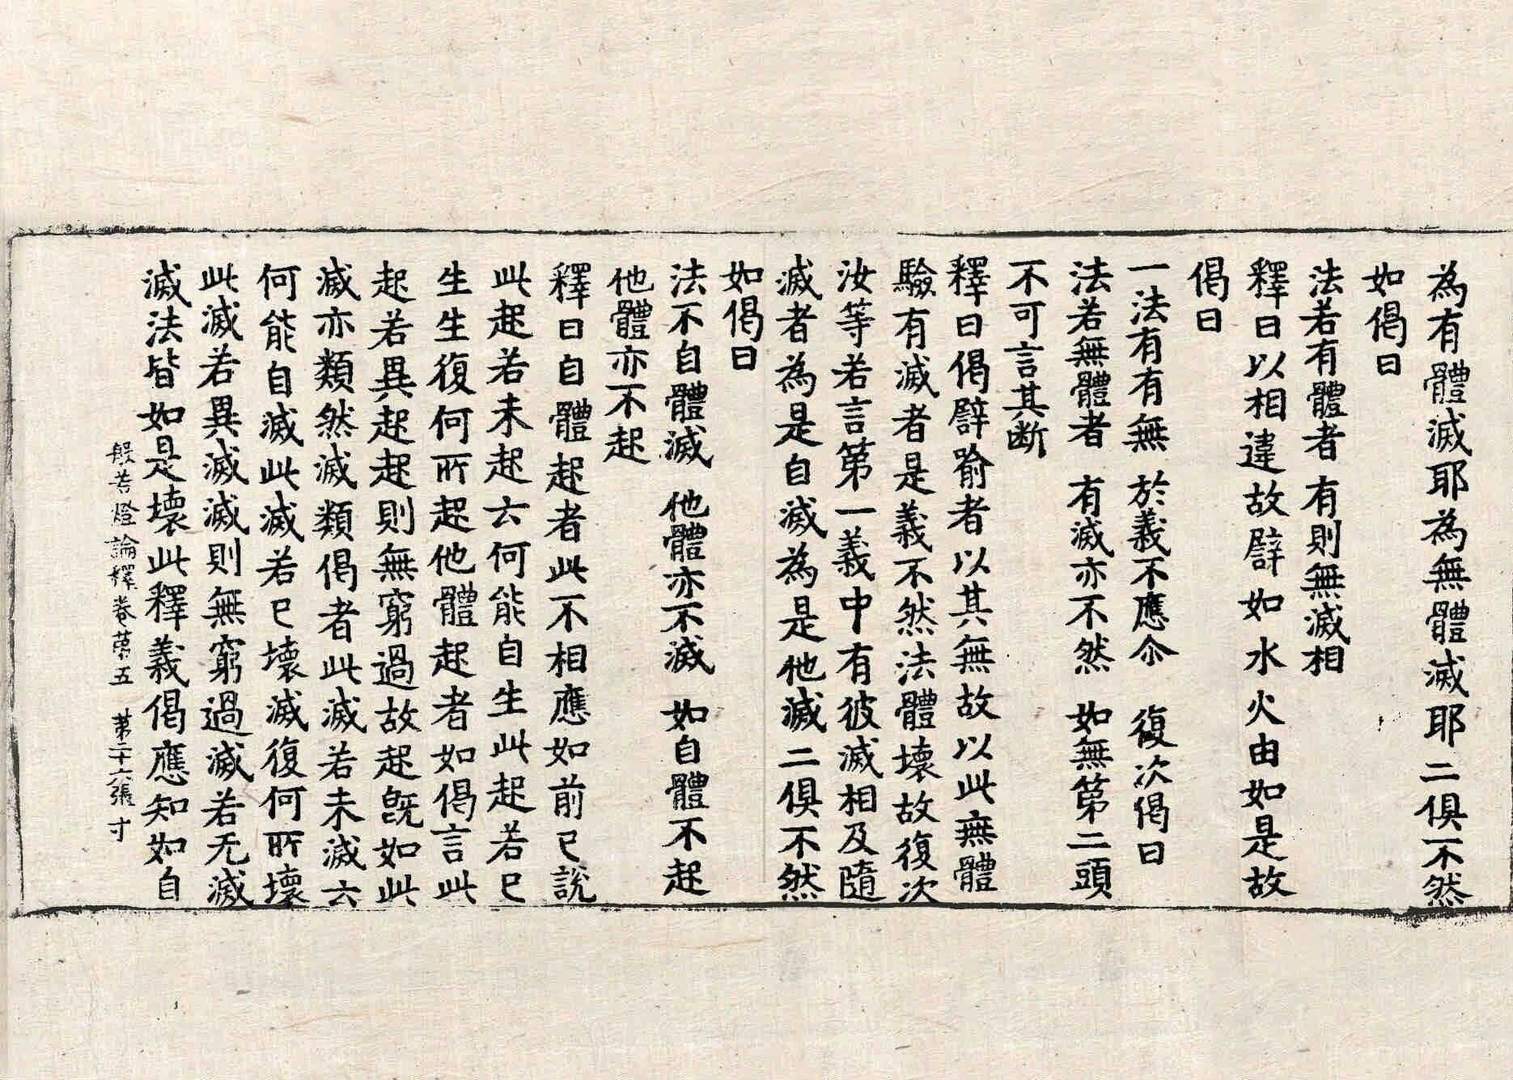 為有體滅耶為無體滅耶二俱不然
如偈曰
法若有體者 有則無滅相
釋曰以相違故譬如水火由如是故
偈曰
一法有有無 於義不應尒 復次偈曰
法若無體者 有滅亦不然 如無第二頭
不可言其断
釋曰偈譬喻者以其無故以此無體
驗有滅者是義不然法體壞故復次
汝等若言第一義中有彼滅相及隨
滅者為是自滅為是他滅二俱不然
如偈曰
法不自體滅 他體亦不滅 如自體不起
他體亦不起
釋曰自體起者此不相應如前已說
此起若未起云何能自生此起若已
生生復何所起他體起者如偈言此
起若異起起則無窮過故起旣如此
滅亦類然滅類偈者此滅若未滅云
何能自滅此滅若已壞滅復何所壞
此滅若異滅滅則無窮過滅若无滅
滅法皆如是壞此釋義偈應知如自
般若燈論釋卷苐五 苐二十六張 寸